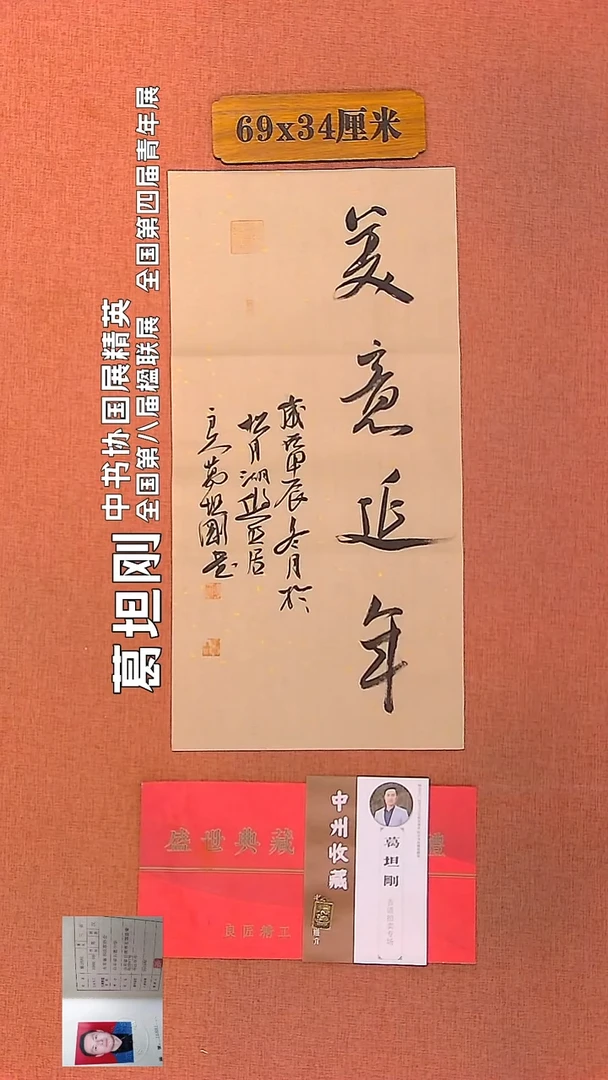 69x34厘米
美意延年
歲次甲辰冬月於
月湖
葛坦剛書
葛坦刚
中书协国展精英
全国第八届楹联展 全国第四届青年展
盛世典藏
良匠精工
中州收藏
葛坦剛